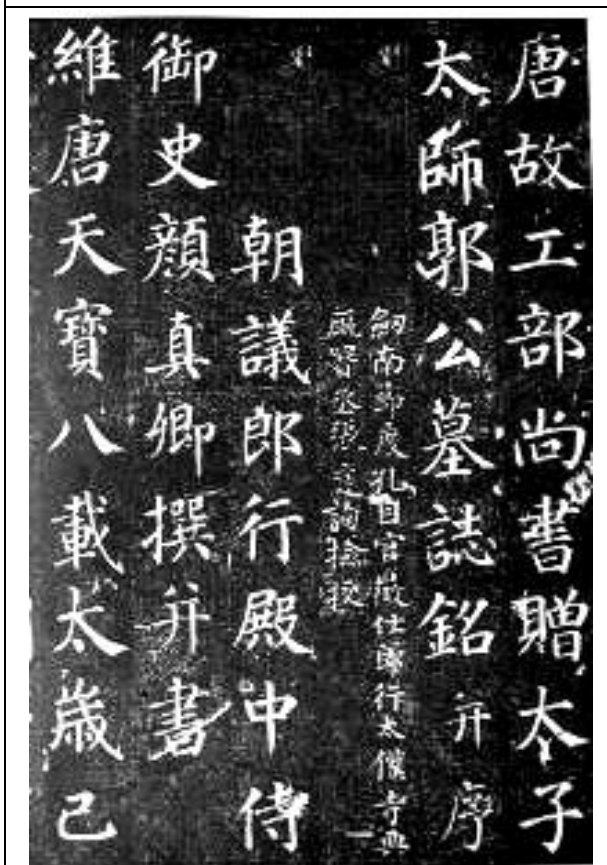 唐故工部尚書贈太子
太師郭公墓誌銘并序
劒南節度孔目官徵仕郎行太僕寺典
廐署丞張詢檢校
朝議郎行殿中侍
御史顔真卿撰并書
維唐天寶八載太歳己